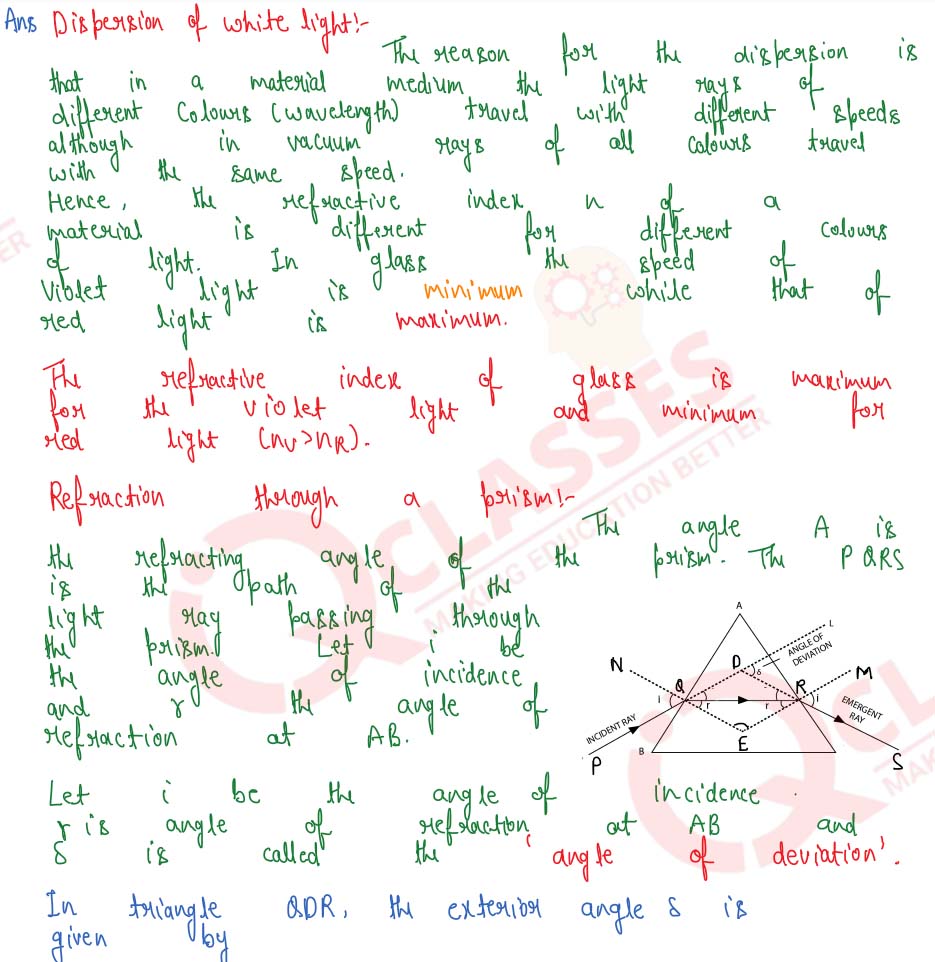 Ans Dispersion of white light:-
The reason for the dispersion is
that in a material medium the light rays of
different Colours (wavelength) travel with different speeds
although in vacuum rays of all colours travel
with the same speed.
Hence, the refractive index n of a
material is different for different colours
of light. In glass the speed of
Violet light is minimum while that of
red light is maximum.
The refractive index of glass is maximum
for the violet light and minimum for
red light (nv>nR).
Refraction through a prism:-
The angle A is
the refracting angle of the prism. The PQRS
is the path of the
light ray passing through
the prism. Let i be
the angle of incidence
and r the angle of
refraction at AB.
A
L
ANGLE OF
DEVIATION
N
D
δ
M
Q
R
i
r
r
i
EMERGENT
RAY
INCIDENT RAY
E
B
P
S
Let i be the angle of incidence
r is angle of refraction at AB and
δ is called the 'angle of deviation'.
In triangle QDR, the exterior angle δ is
given by
CLASSES
MAKING EDUCATION BETTER